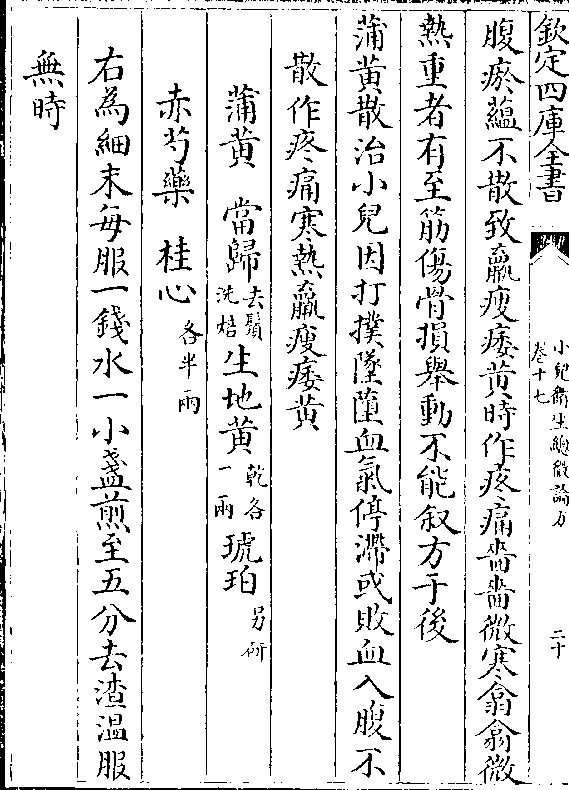 欽定四庫全書
小兒衛生總微論方
卷十七
二十
腹瘀蘊不散致羸瘦痿黃時作疼痛嗇嗇微寒翕翕微
熱重者有至筋傷骨損舉動不能叙方于後
蒲黃散治小兒因打撲墜墮血氣停滯或敗血入腹不
散作疼痛寒熱羸瘦痿黃
蒲黃 當歸去鬚洗焙生地黃乾各一兩琥珀另研
赤芍藥 桂心各半兩
右為細末每服一錢水一小盞煎至五分去渣溫服
無時